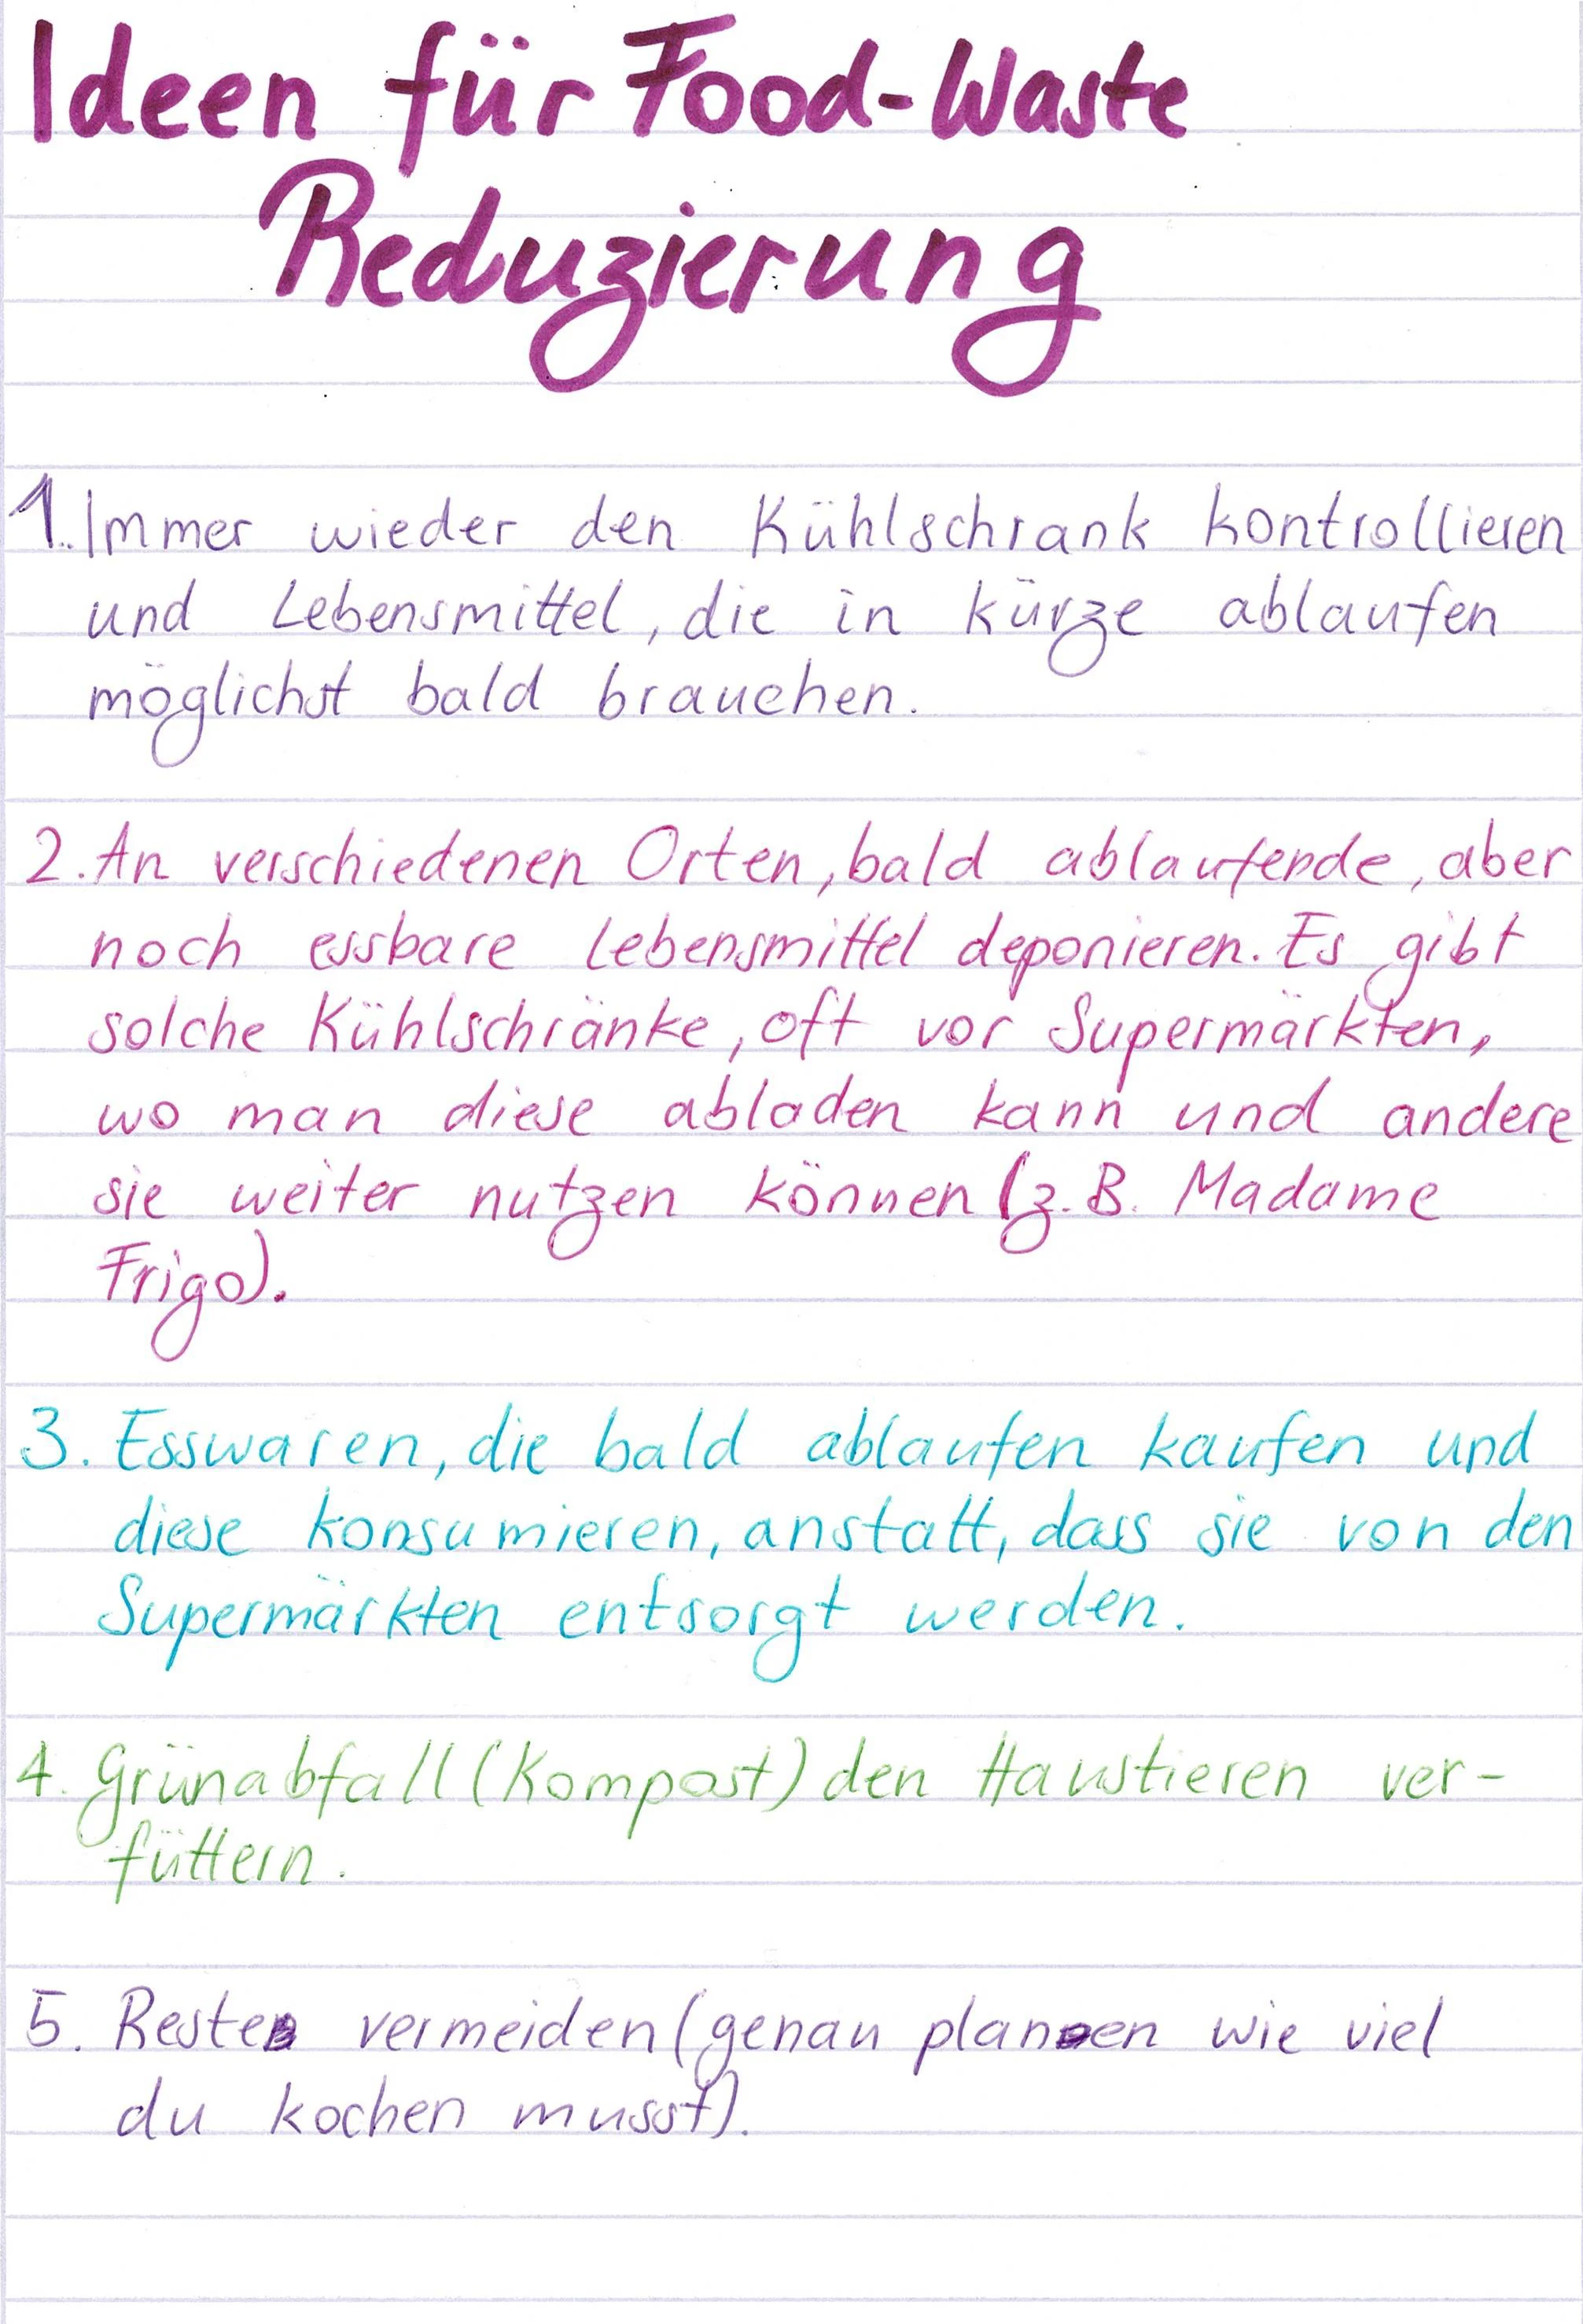 Ideen für Food-Waste
Reduzierung
1. Immer wieder den Kühlschrank kontrollieren
und Lebensmittel, die in kürze ablaufen
möglichst bald brauchen.
2. An verschiedenen Orten, bald ablaufende, aber
noch essbare Lebensmittel deponieren. Es gibt
solche Kühlschränke, oft vor Supermärkten,
wo man diese abladen kann und andere
sie weiter nutzen können (z.B. Madame
Frigo).
3. Esswaren, die bald ablaufen kaufen und
diese konsumieren, anstatt, dass sie von den
Supermärkten entsorgt werden.
4. Grünabfall (Kompost) den Haustieren ver-
füttern.
5. Reste vermeiden (genau planen wie viel
du kochen musst).